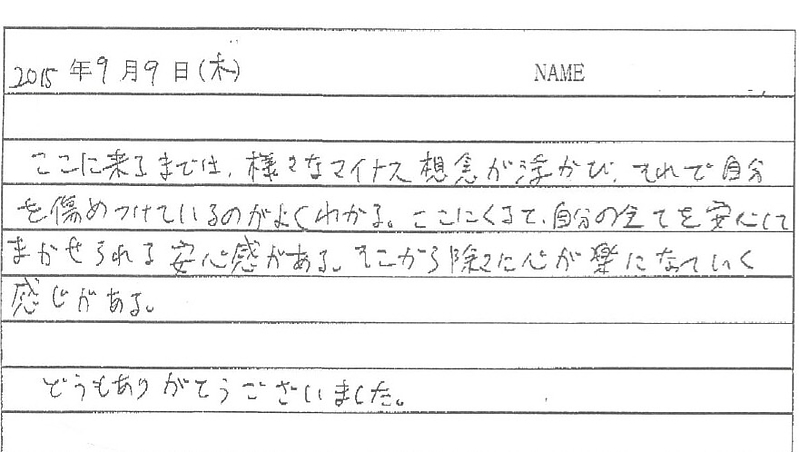 2015年9月9日(木) NAME
ここに来るまでは、様々なマイナス想念が浮かび、それで自分
を傷めつけているのがよくわかる。ここにくると、自分の全てを安心して
まかせられる安心感がある。そこから除々に心が楽になっていく
感じがある。
どうもありがとうございました。